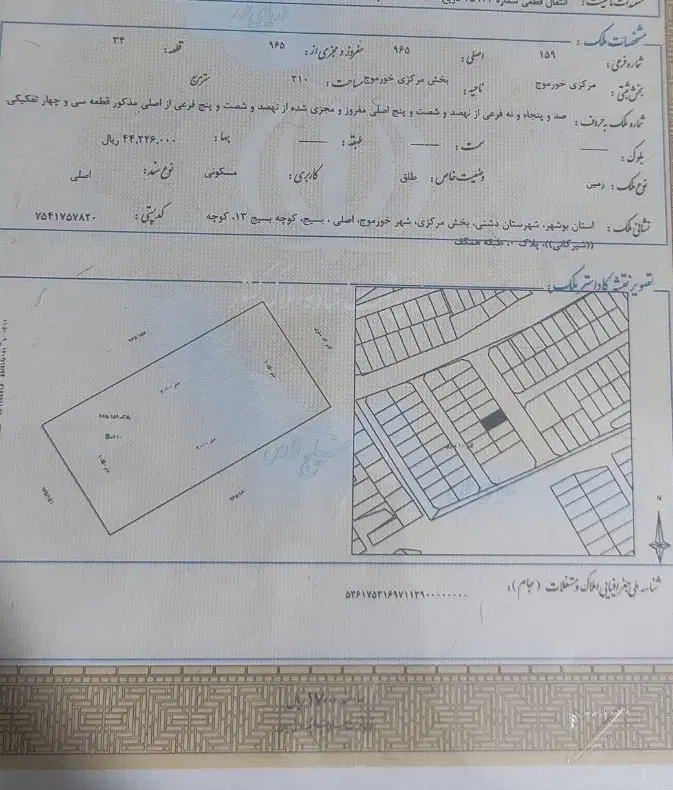 مشخصات ملک :
شماره فرعی : ۱۵۹ اصلی : ۹۶۵ مفروز و مجزی از : ۹۶۵ قطعه : ۳۴
بخش ثبتی : مرکزی خورموج ناحیه : بخش مرکزی خورموج مساحت : ۲۱۰ مترمربع
شماره ملک به حروف : صد و پنجاه و نه فرعی از نهصد و شصت و پنج اصلی مفروز و مجزی شده از نهصد و شصت و پنج فرعی از اصلی مذکور قطعه سی و چهار تفکیکی
بلوک : ——— سمت : ——— طبقه : ——— بها : ۴۴,۲۲۶,۰۰۰ ریال
نوع ملک : زمین وضعیت خاص : طلق کاربری : مسکونی نوع سند : اصلی
نشانی ملک : استان بوشهر، شهرستان دشتی، بخش مرکزی، شهر خورموج، اصلی ، بسیج، کوچه بسیج ۱۳، کوچه کدپستی : ۷۵۴۱۷۵۷۸۲۰
((شیرکانی))، پلاک ۰، طبقه همکف
تصویر نقشه کاداستر ملک :
خلیج فارس
N
شناسه ملی جغرافیایی املاک و مستغلات (جام) : ۵۳۶۱۷۵۳۱۶۹۷۱۱۳۹۰۰۰۰۰۰۰۰۰